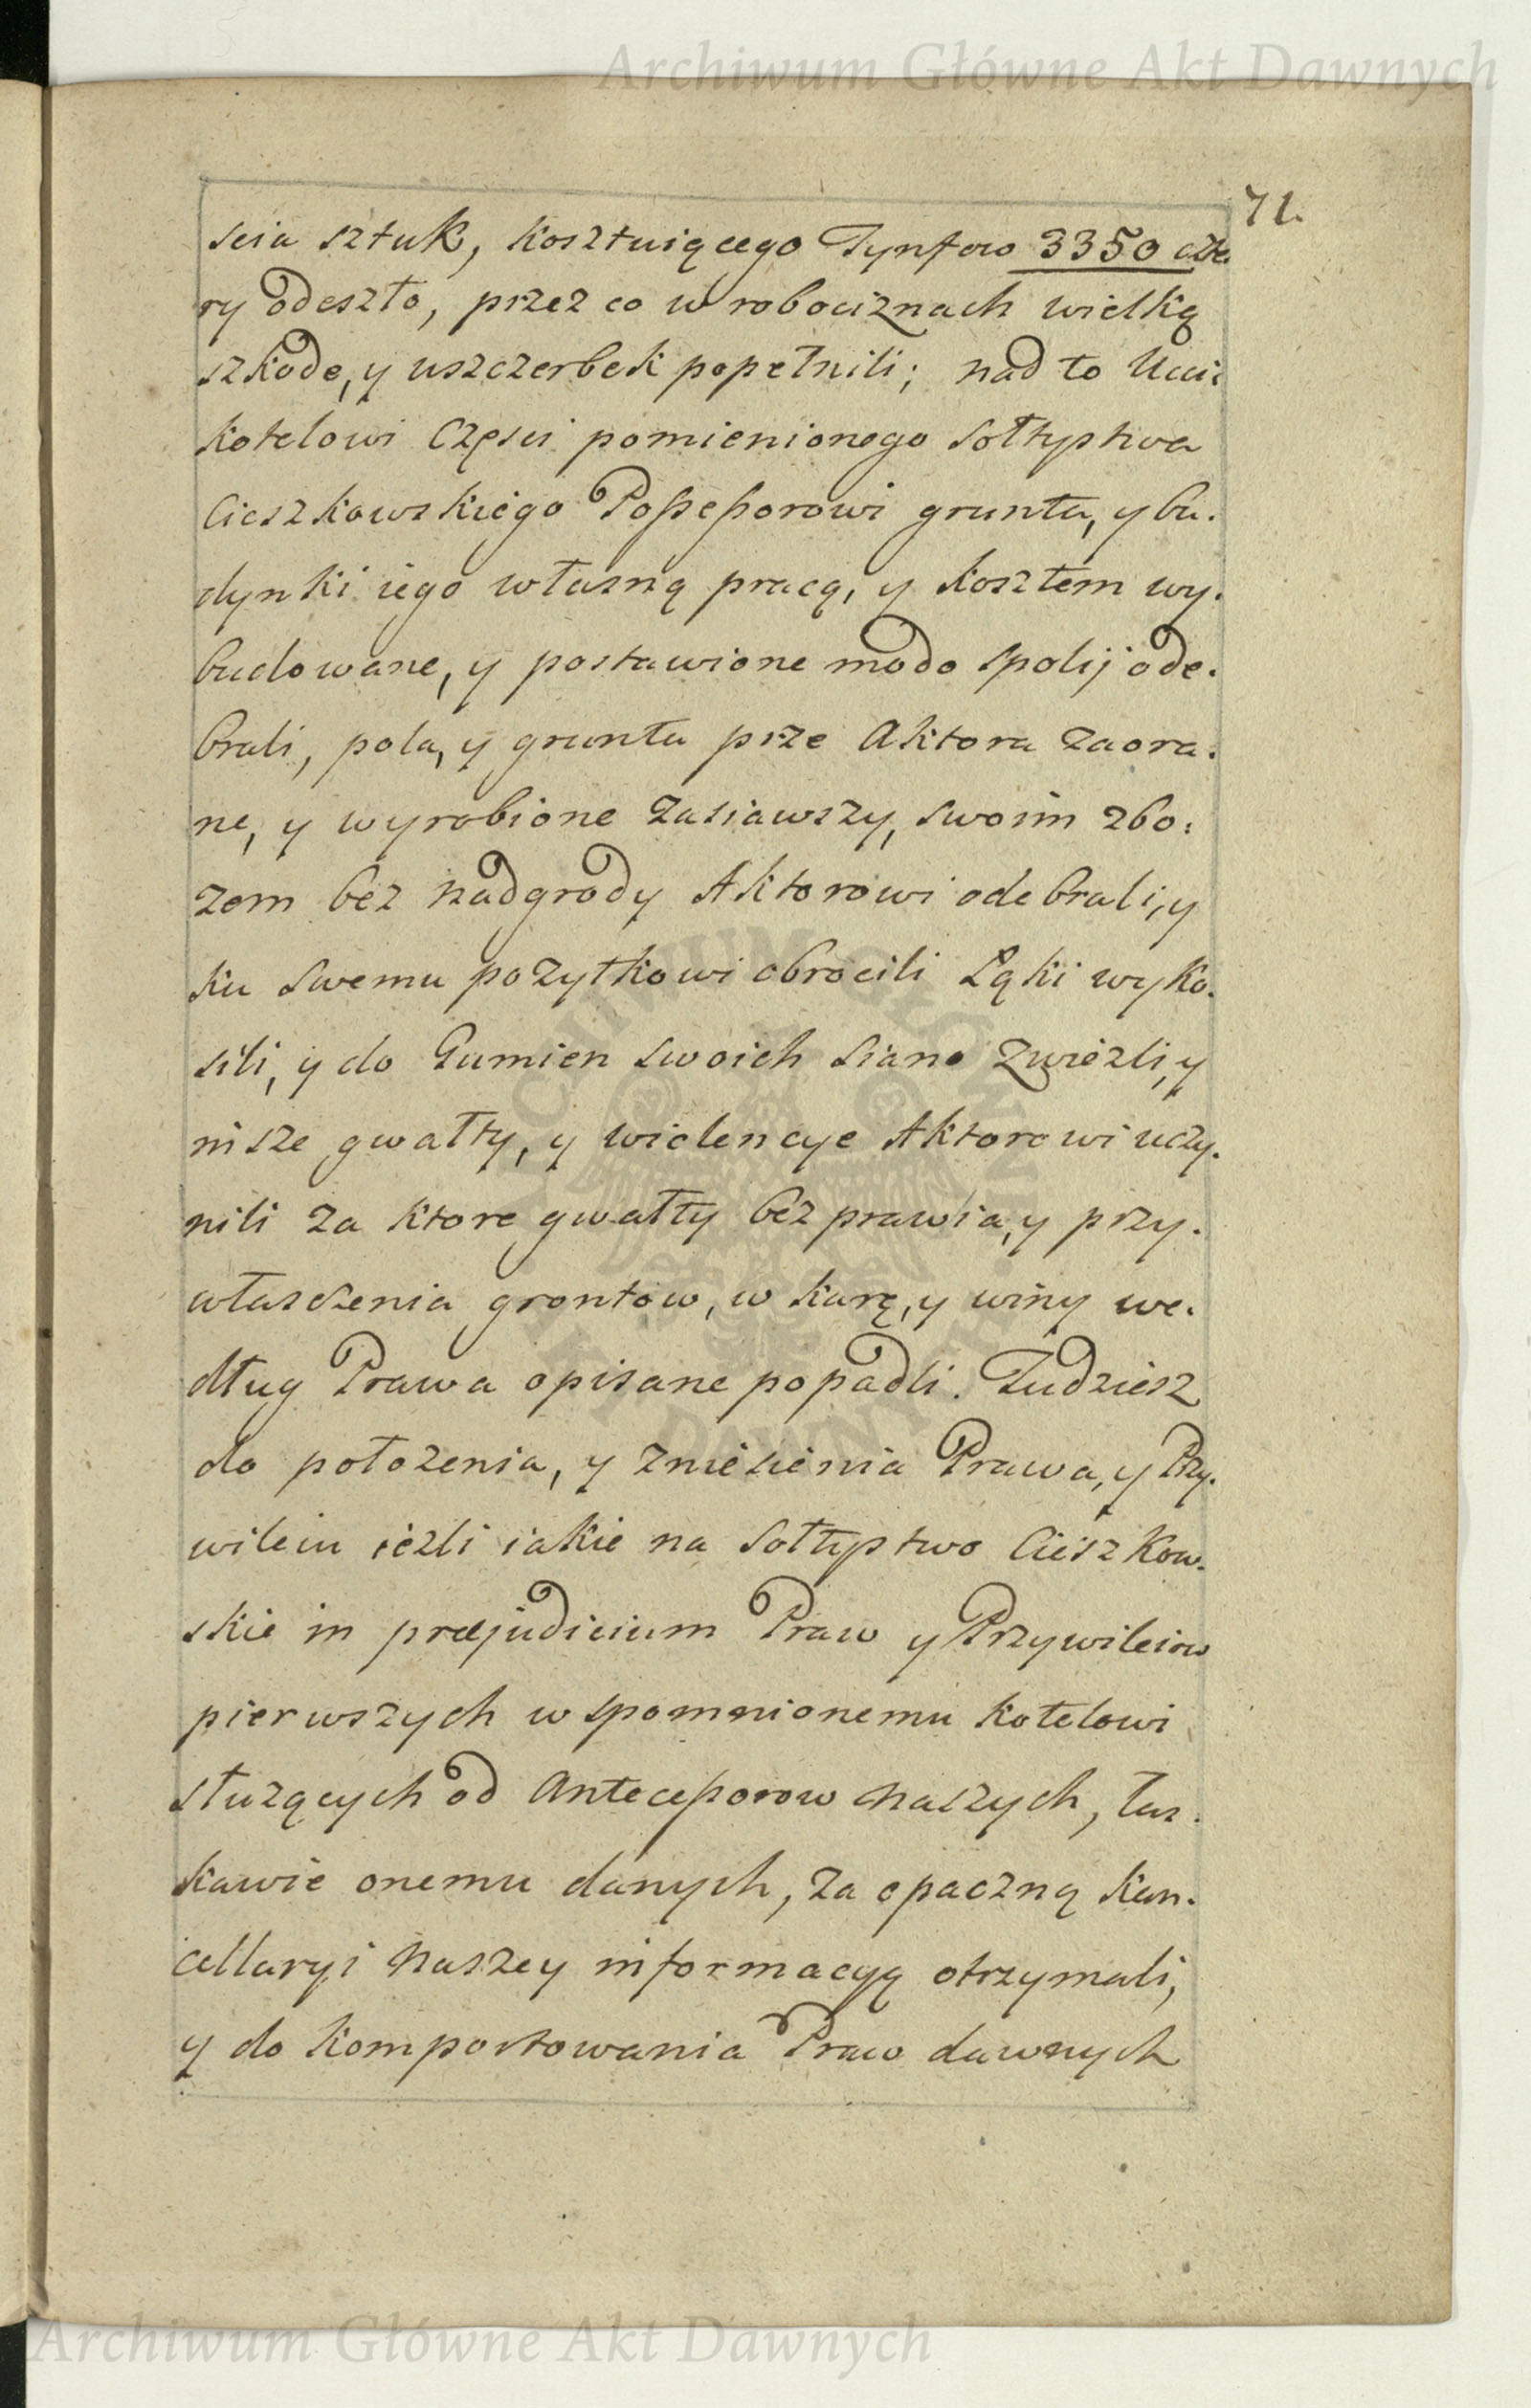 Archiwum Główne Akt Dawnych
71.
scia sztuk, kosztuiącego Tynfow 3350 czte.
ry odeszło, przez co w robociznach wielką
szkode, y uszczerbek popełnili; nad to Ucci:
kotelowi Częsci pomienionego Sołtystwa
Cieszkowskiego Possessorowi grunta, y bu.
dynki iego własną pracą, y kosztem wy.
budowane, y postawione modo spolij ode.
brali, pola, y grunta prze Aktora zaora.
ne, y wyrobione zasiawszy, swoim zbo:
zem bez nadgrody Aktorowi odebrali, y
ku swemu pozytkowi obrocili Łąki wyko.
sili, y do Gumien swoich siano zwiezli, y
nisze gwałty, y wiolencye Aktorowi uczy.
nili za ktore gwałty bezprawia, y przy.
własczenia grontow, w karę, y winy we.
dług Prawa opisane popadli. Tudziesz
do połozenia, y zniesienia Prawa, y Przy.
wileiu iezli iakie na Sołtystwo Cieszkow.
skie in præjudicium Praw y Przywileiow
pierwszych wspomnionemu kotelowi
słuzących od Antecessorow Naszych, łas.
kawie onemu danych, za opaczną kan.
cellaryi Naszey informacyą otrzymali,
y do komportowania Praw dawnych
Archiwum Główne Akt Dawnych